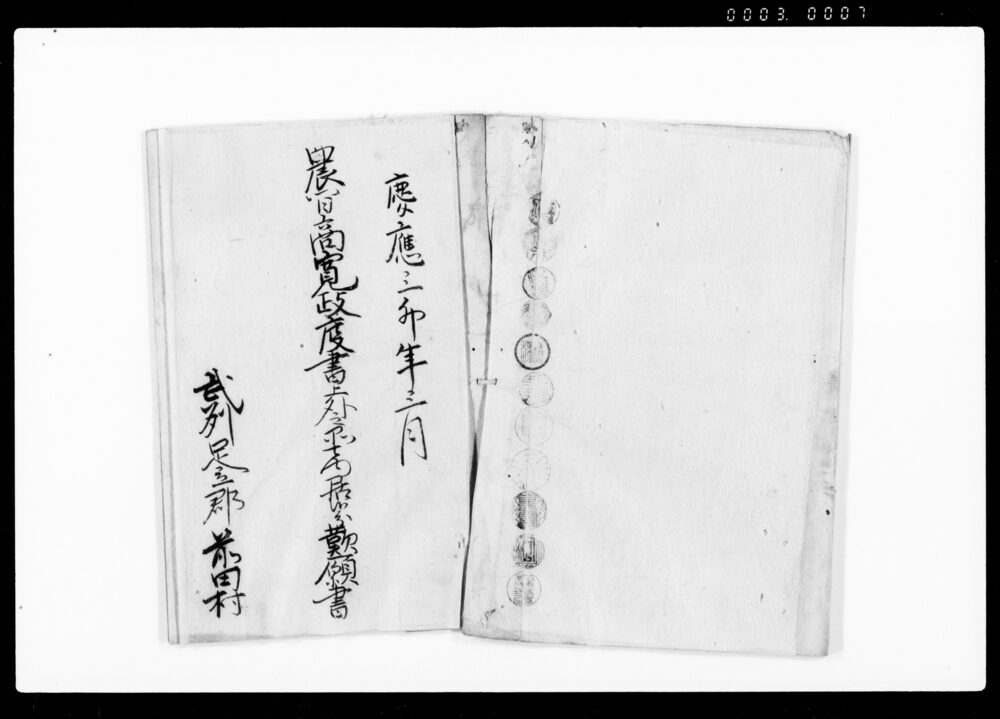 0003. 0007
慶應三卯年三月
農間商寛政度書上外之居歎願書
武州足立郡 前田村